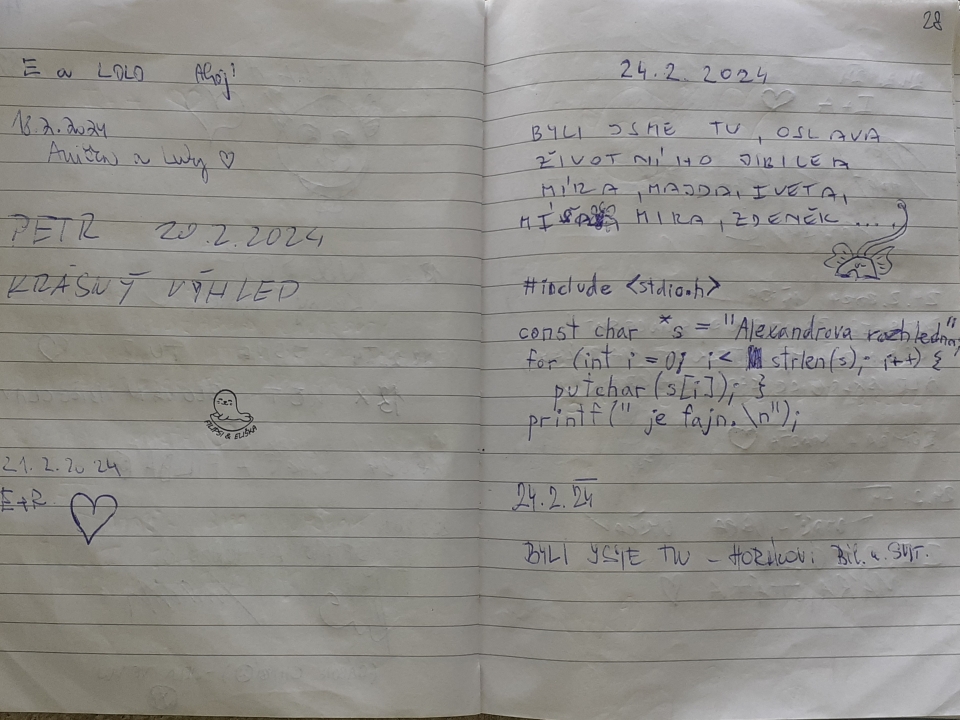 E a LOLO Ahoj!
18.2.2024
a Luky
PETR 20.2.2024
KRÁSNÝ VÝHLED
FILIPSI & ELIŠKA
21.2.2024
E+R
28
24.2.2024
BYLI JSME TU, OSLAVA
ŽIVOTNÍHO JIBILEA
MÍRA, MAJDA, IVETA,
MIRA, ZDENĚK ....,
#include <stdio.h>
const char *s = "Alexandrova rozhledna";
for (int i = 0; i < strlen(s); i++) {
putchar (s[i]); }
printf (" je fajn. \n");
24.2.24
BYLI JSME TU -